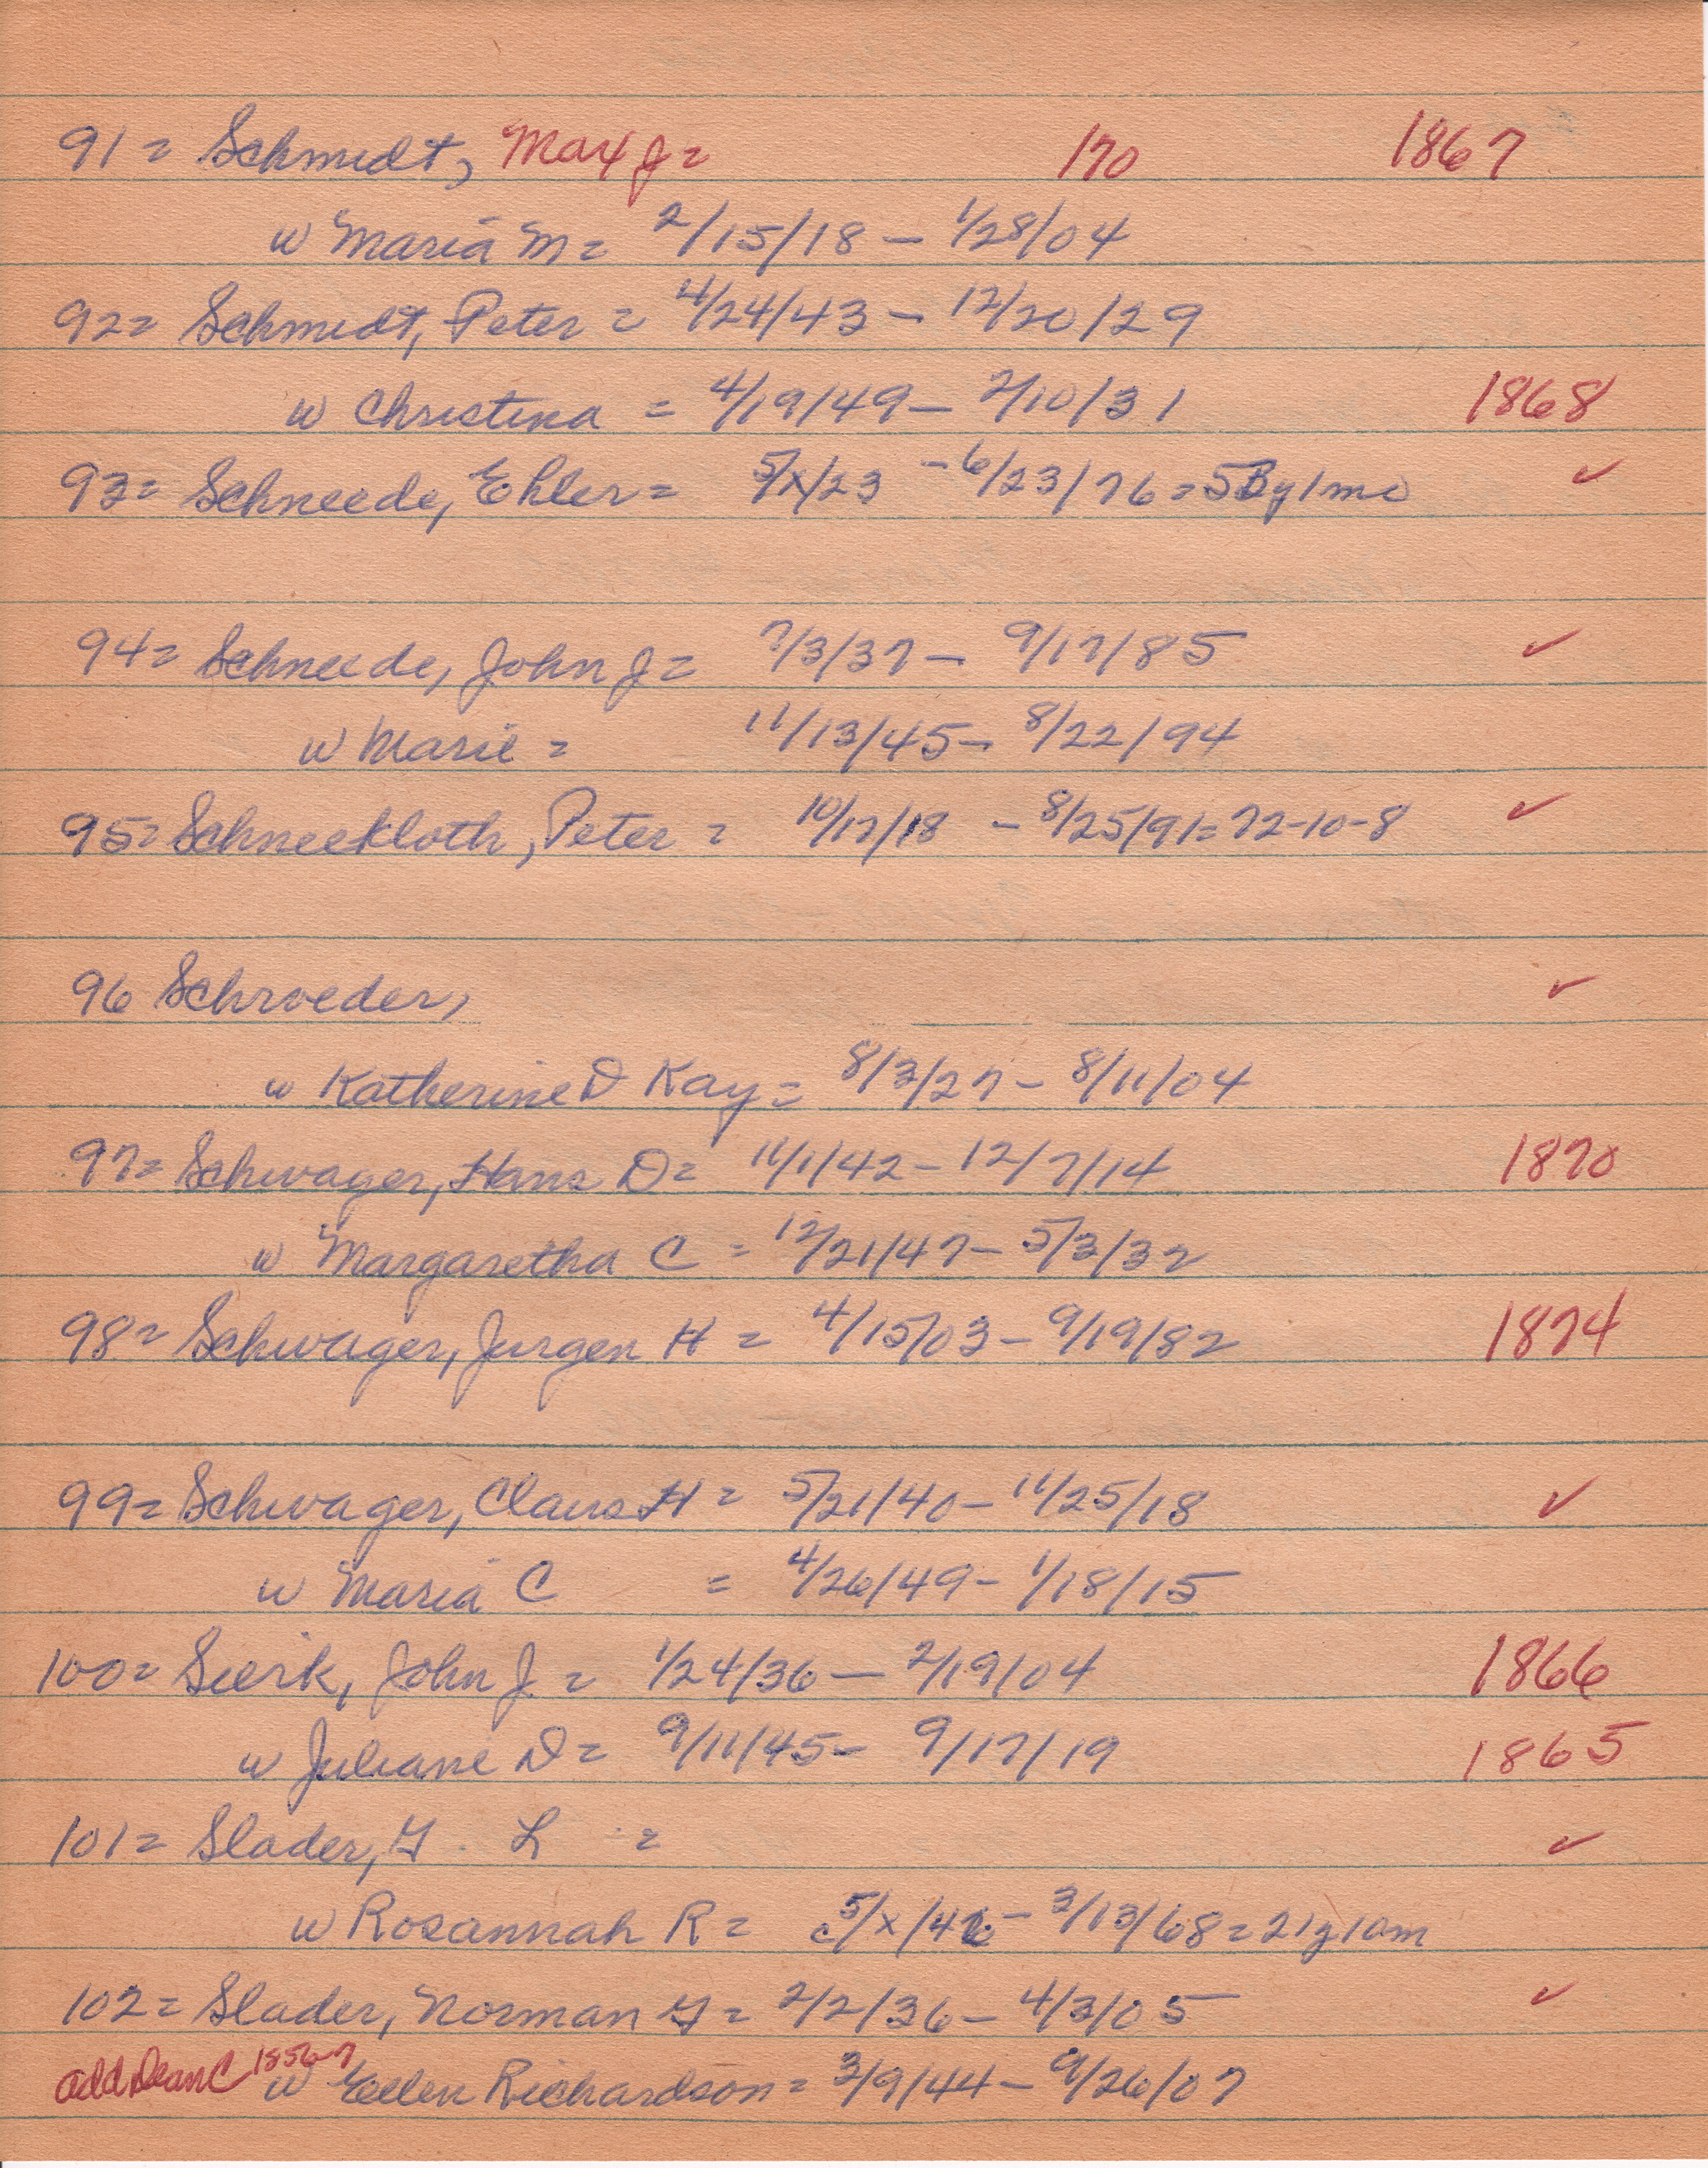 91= Schmidt, Max J= 170 1867
w Maria M= 2/15/18 — 1/28/04
92= Schmidt, Peter = 4/24/43 — 12/20/29
w Christina = 4/19/49 — 2/10/31 1868
93= Schneede, Ehler= 5/x/23 - 6/23/76 = 53y1mo ✓
94= Schneede, John J= 7/3/37 — 9/17/85 ✓
w Marie = 11/13/45 — 8/22/94
95= Schneekloth, Peter = 10/17/18 - 8/25/91= 72-10-8 ✓
96 Schroeder, ✓
w Katherine D Kay = 8/3/27 - 8/11/04
97= Schwager, Hans D= 11/1/42 - 12/7/14 1870
w Margaretha C = 12/21/47 - 5/3/32
98= Schwager, Jurgen H = 4/15/03 - 9/19/82 1874
99= Schwager, Claus H = 5/21/40 - 11/25/18 ✓
w Maria C = 4/26/49 - 1/18/15
100= Sierk, John J. = 1/24/36 — 2/19/04 1866
w Juliane D= 9/11/45 - 9/17/19 1865
101= Slader, G. L = ✓
w Rosannah R = c5/x/46 - 3/13/68 = 21y10m
102= Slader, Norman G= 2/2/36 - 4/3/05 ✓
add Dean C 1856-7 w Ellen Richardson = 3/9/44 - 9/26/07